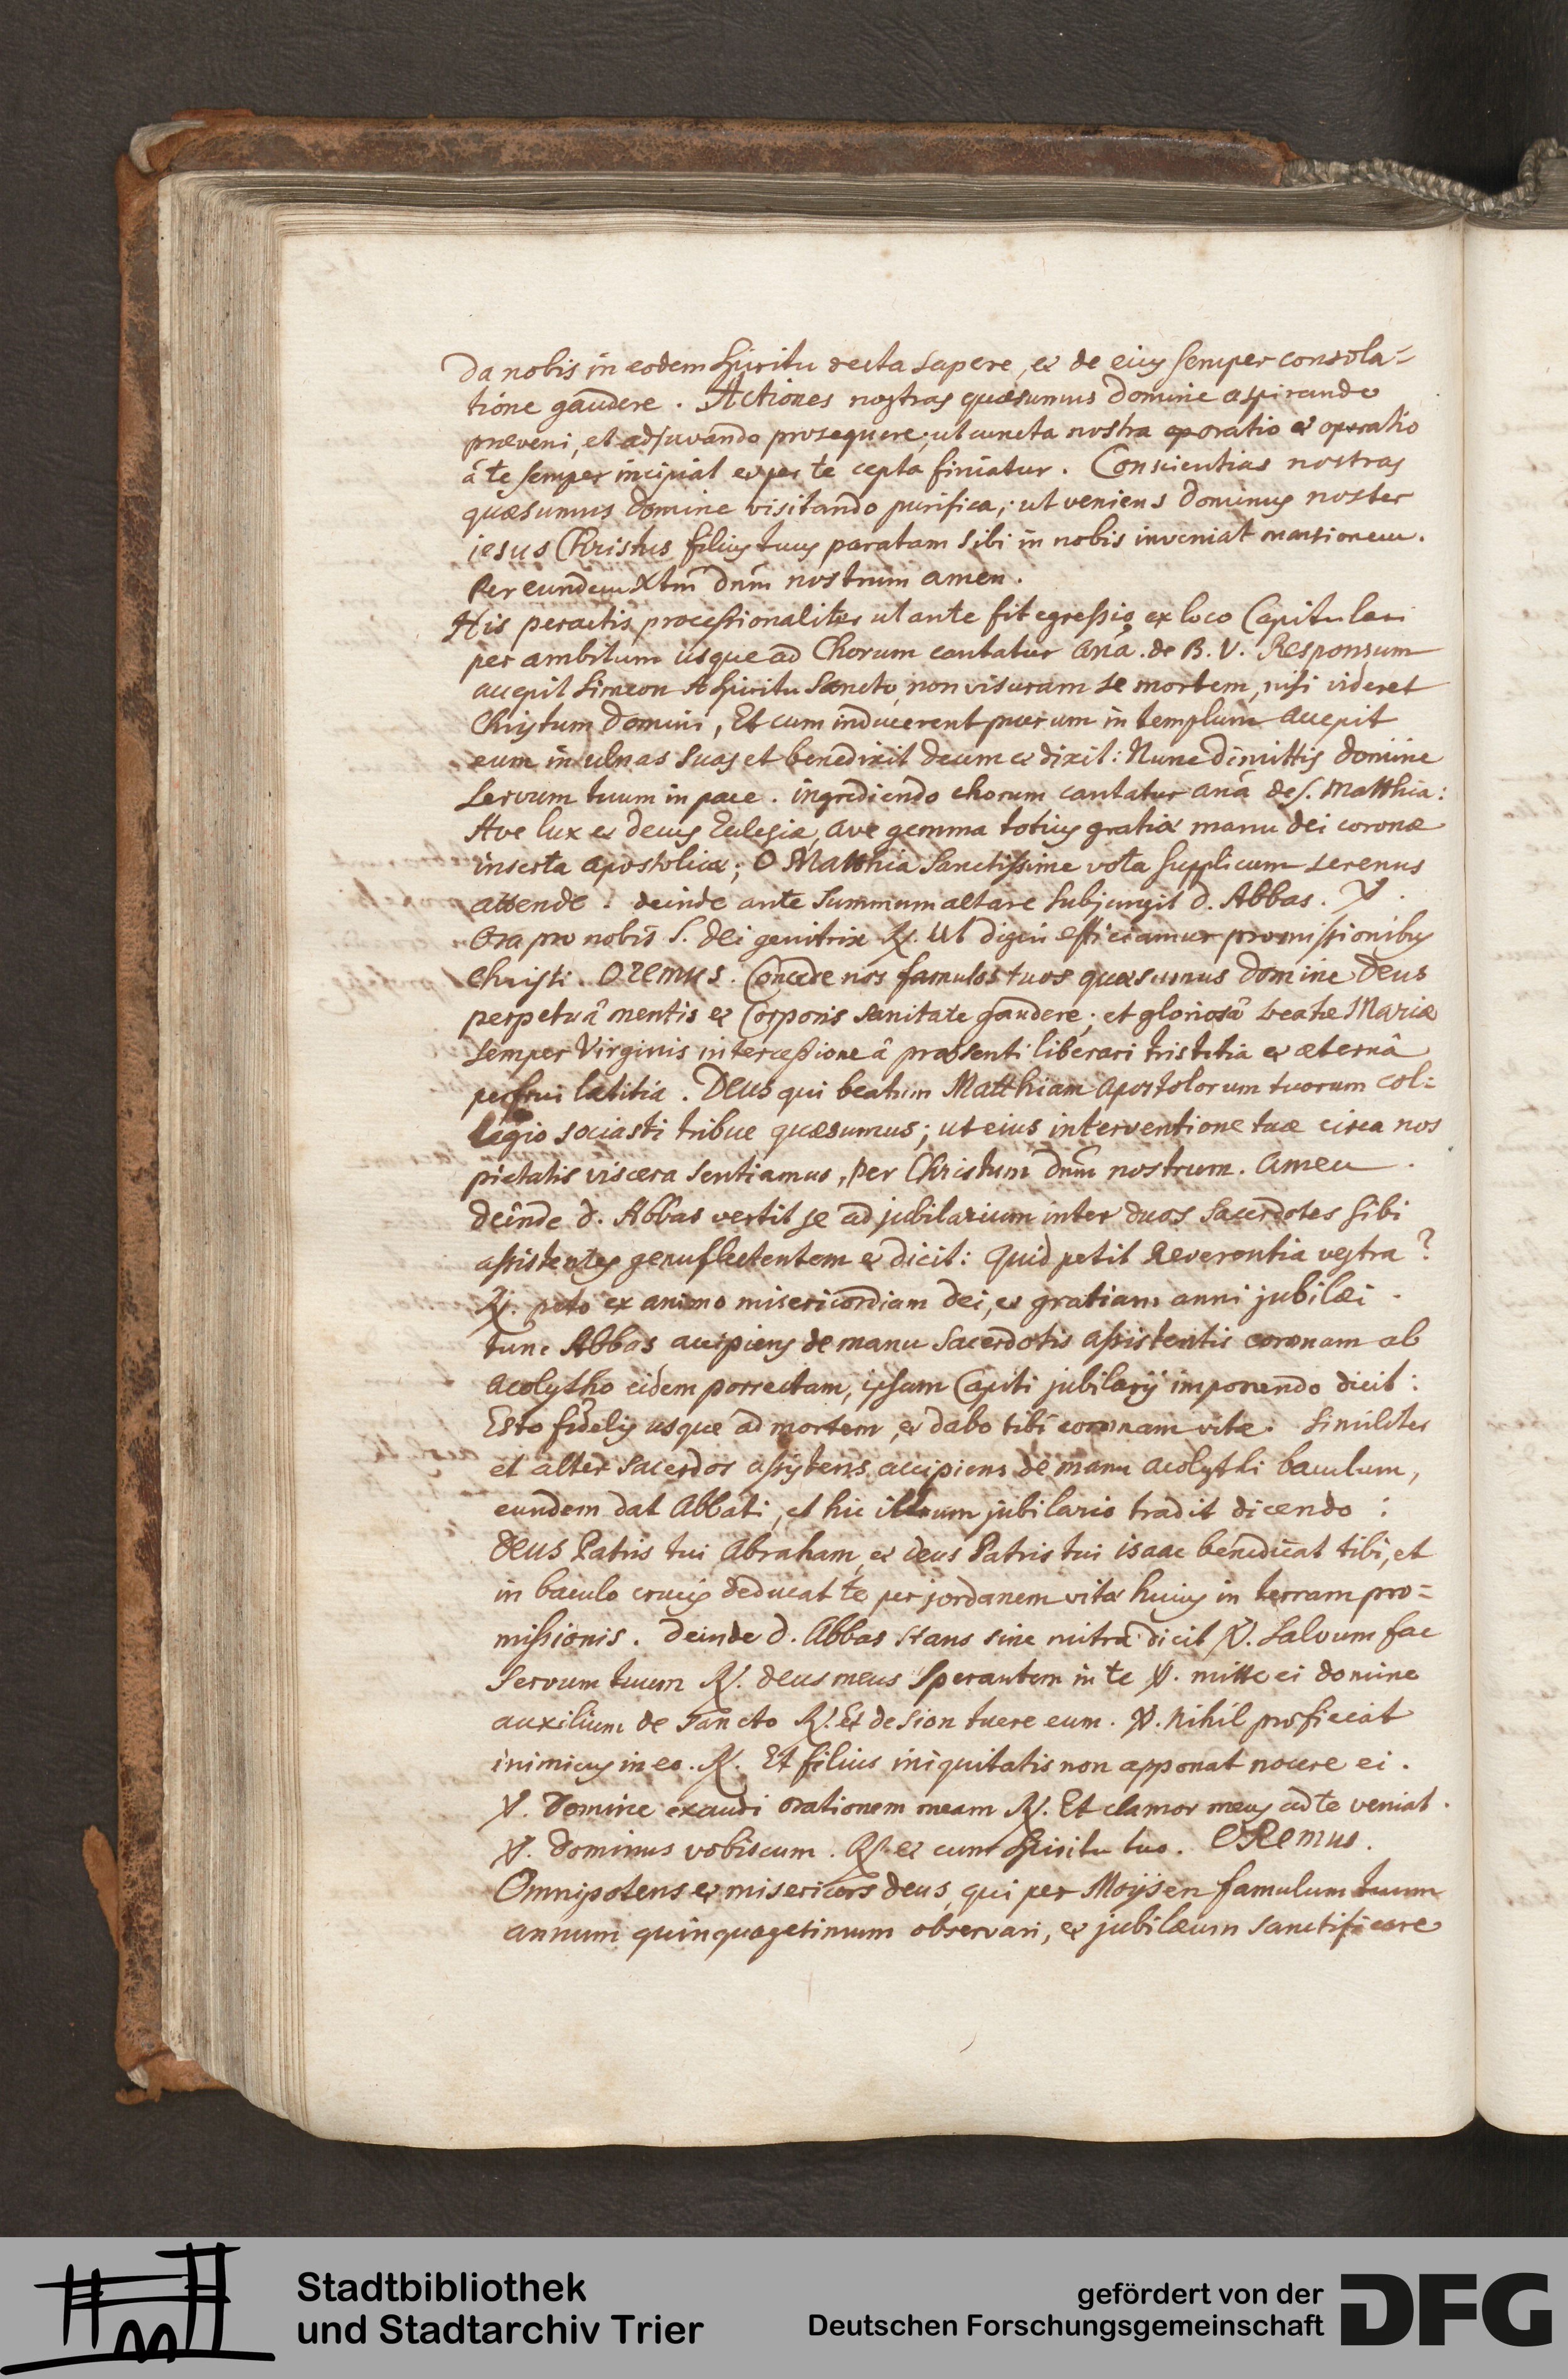 Da nobis in eodem spiritu recta sapere, et de eius semper consola=
tione gaudere. Actiones nostras quæsumus Domine aspirando
præveni, et adjuvando prosequere; ut cuncta nostra oratio et operatio
â te semper incipiat et per te cepta finiatur. Conscientias nostras
quæsumus Domine visitando purifica; ut veniens Dominus noster
iesus Christus filius tuus paratam sibi in nobis inveniat mansionem.
Per eundem Xtm̃ Dnm̃ nostrum amen.
His peractis processionaliter ut ante fit egressio ex loco Capitulari
per ambitum usque ad Chorum cantatur anã. de B. V. Responsum
accepit Simeon A Spiritu Sancto, non visurum se mortem, nisi videret
Christum Domini, Et cum inducerent puerum in templum accepit
eum in ulnas suas et benedixit deum et dixit: Nunc dimittis domine
servum tuum in pace. ingrediendo chorum cantatur anã de S. Matthia:
Ave lux et decus Eclesiæ, ave gemma totius gratiæ manu dei coronæ
inserta apostolicæ; O Matthia Sanctissime vota supplicum serenus
attende. deinde ante summum altare subjungit D. Abbas. ℣.
Ora pro nobis S. dei genitrix ℟. Ut digni efficiamur promissionibus
Christi. OREMUS. Concede nos famulos tuos quæsumus Domine Deus
perpetuâ mentis et Corporis sanitate gaudere; et gloriosâ beatæ Mariæ
semper Virginis intercessione â præsenti liberari tristitia et æternâ
perfrui lætitia. DEUS qui beatum Matthiam apostolorum tuorum col=
legio sociasti tribue quæsumus; ut eius interventione tuæ circa nos
pietatis viscera sentiamus, per Christum Dnm̃ nostrum. Amen.
deinde d. Abbas vertit se ad jubilarium inter duos Sacerdotes sibi
assistentes genuflectentem et dicit: Quid petit Reverentia vestra?
℟. peto ex animo misericordiam dei, et gratiam anni jubilæi.
tunc Abbas accipiens de manu Sacerdotis assistentis coronam ab
acolytho eidem porrectam, ipsam Capiti jubilarij imponendo dicit:
Esto fidelis usque ad mortem, et dabo tibi coronam vitæ. Similiter
et alter sacerdos assistens accipiens de manu acolythi baculum,
eundem dat Abbati, et hic illum jubilario tradit dicendo:
DEUS Patris tui Abraham, et deus Patris tui isaac benedicat tibi, et
in baculo crucis deducat te per jordanem vitæ huius in terram pro=
missionis. Deinde d. Abbas stans sine mitrâ dicit ℣. Salvum fac
servum tuum ℟. deus meus sperantem in te ℣. mitte ei domine
auxilium de sancto ℟. Et de sion tuere eum. ℣. nihil proficiat
inimicus in eo. ℟. Et filius iniquitatis non apponat nocere ei.
℣. Domine exaudi orationem meam ℟. Et clamor meus ad te veniat.
℣. Dominus vobiscum. ℟. et cum Spiritu tuo. OREMUS.
Omnipotens et misericors deus, qui per Moÿsen famulum tuum
annum quinquagesimum observari, et jubilæum sanctificare
Stadtbibliothek
und Stadtarchiv Trier
gefördert von der
Deutschen Forschungsgemeinschaft
DFG